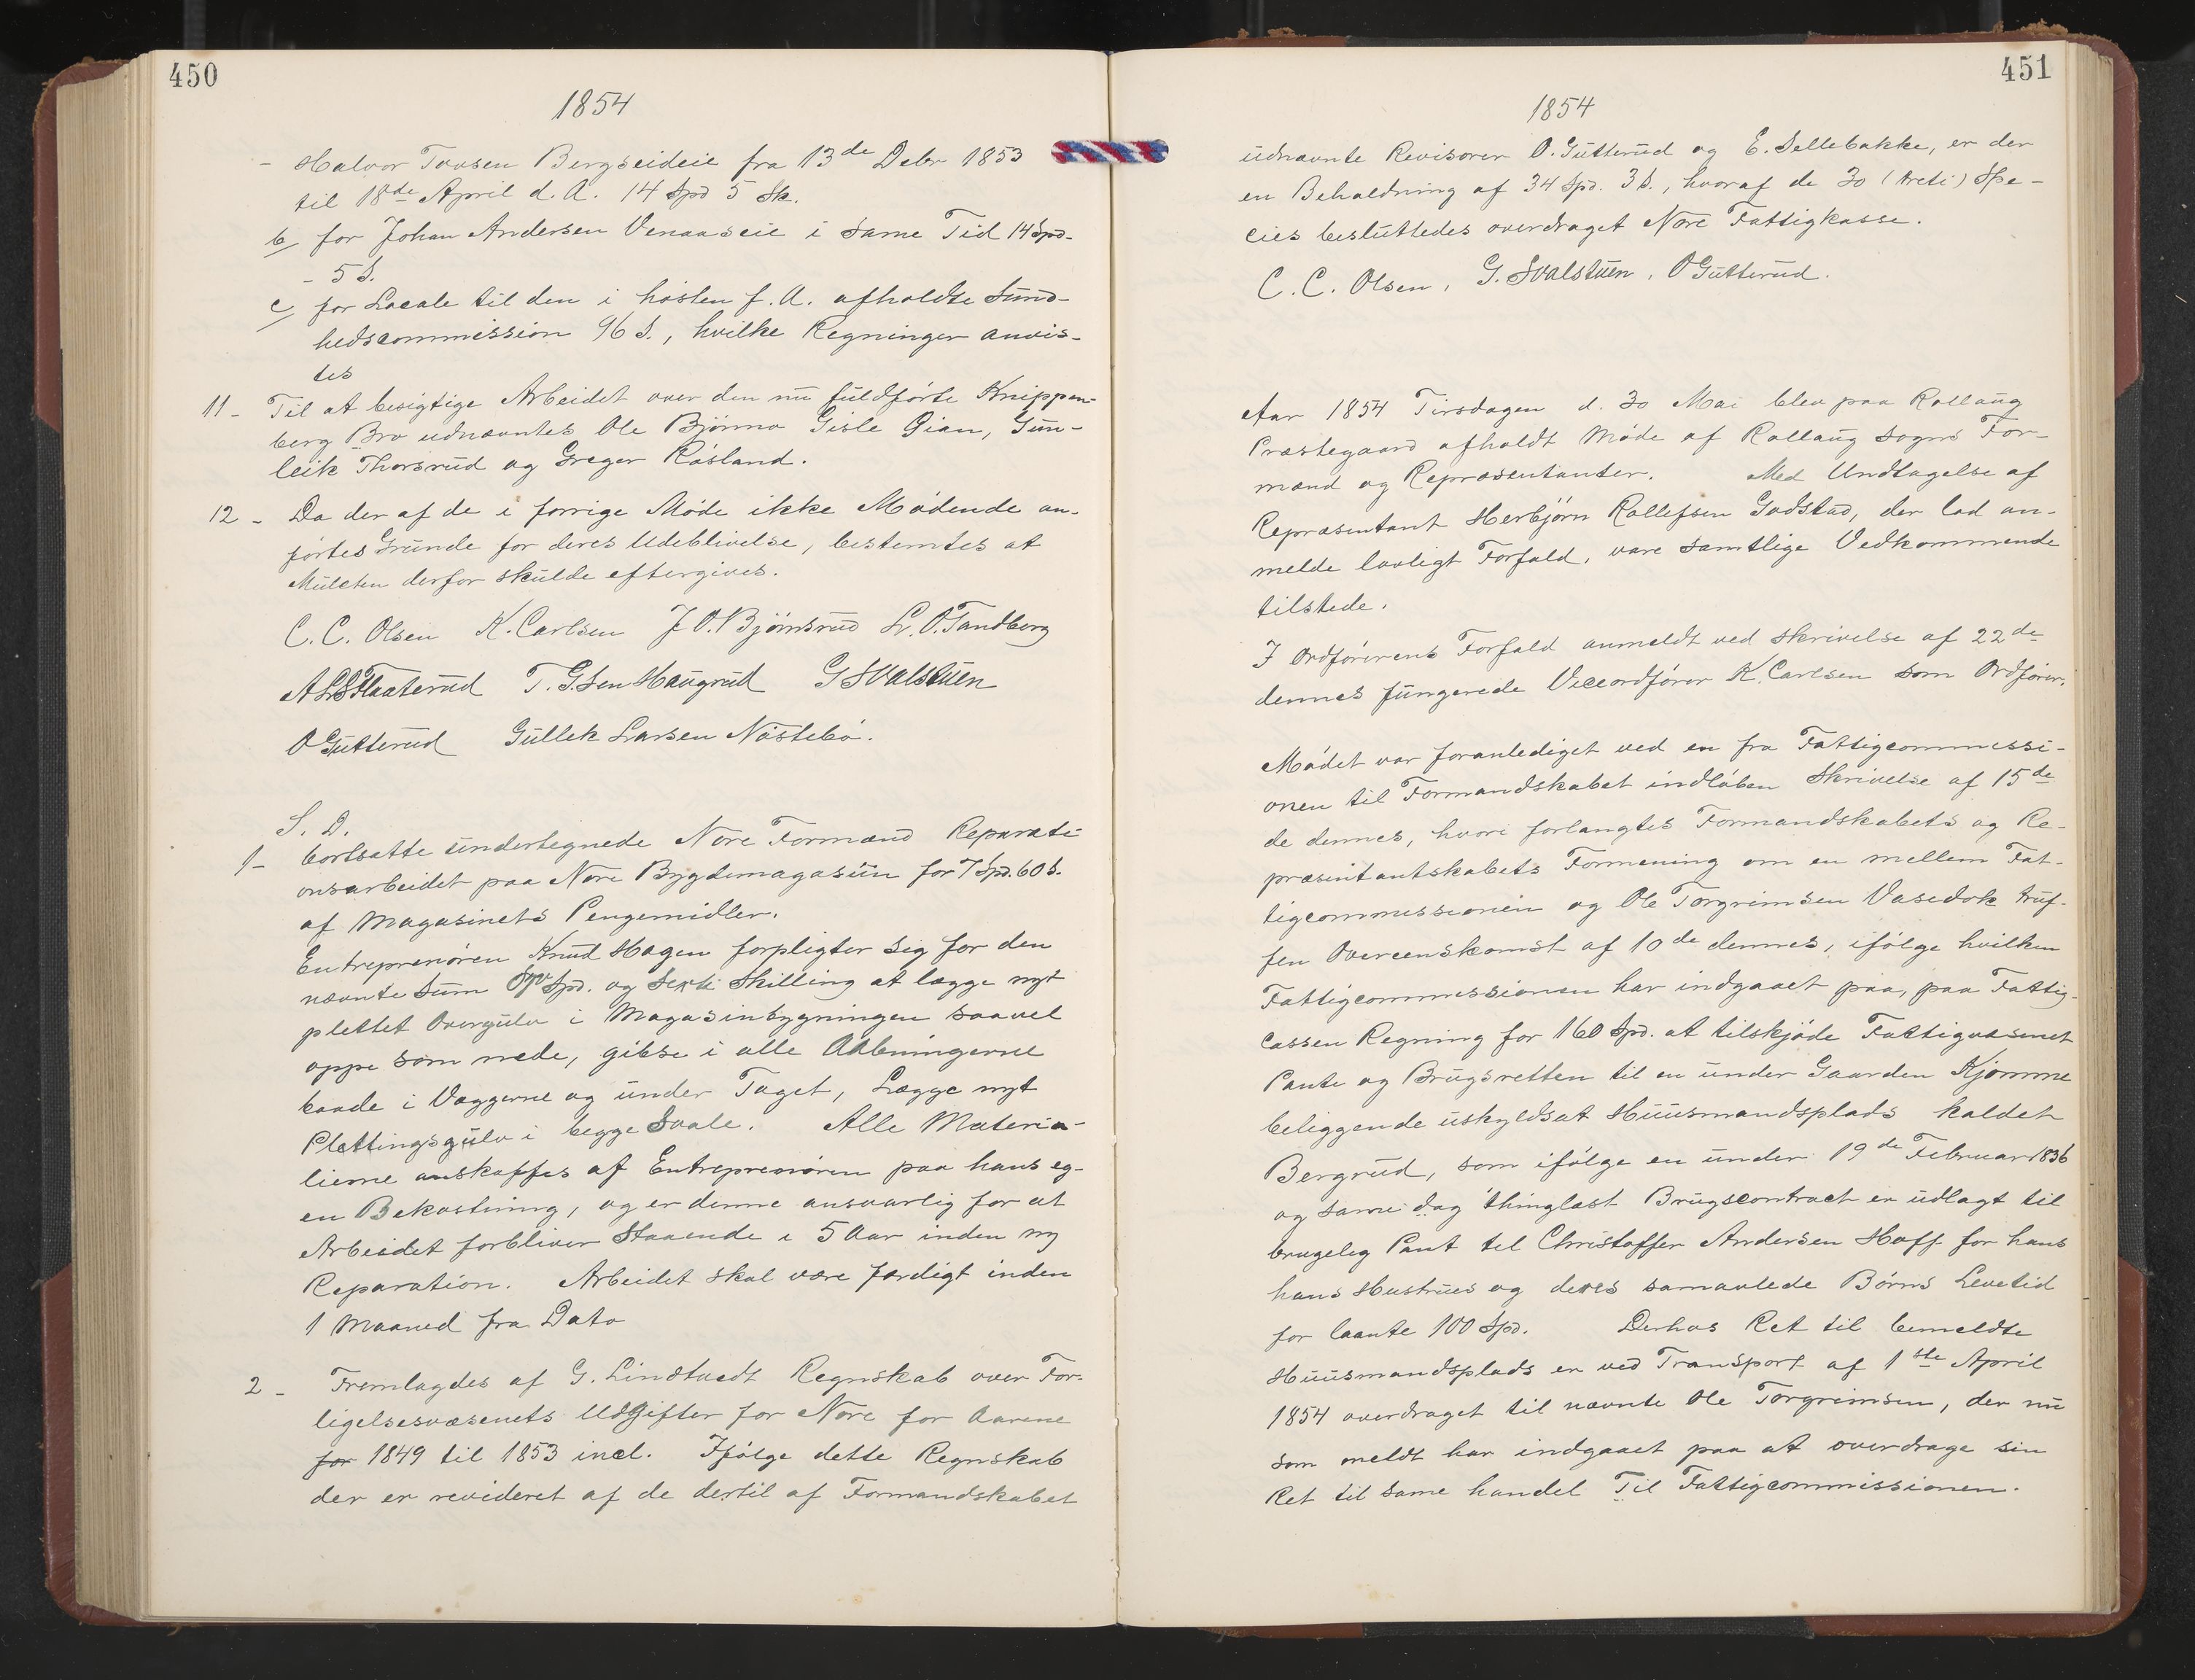 450
1854
- Halvor Tovsen Bergseideie fra 13de Debr 1853
til 18de April d. A. 14 Spd 5 Sk.
b/ for Johan Andersen Venaaseie i same Tid 14 Spd-
- 5 S.
c/ for Locale til den i høsten f. A. afholdte Sund-
hedscommission 96 S., hvilke Regninger anvis-
tes
11- Til at besigtige Arbeidet over den nu fuldførte Knippen-
berg Bro udnævntes Ole Bjönno Gisle Qian, Gun-
leik Thorsrud og Greger Råsland.
12- Da der af de i forrige Møde ikke Mødende an-
førtes Grunde for deres Udeblivelse, bestemtes at
Mulcten derfor skulde eftergives.
C. C. Olsen K. Carlsen J O. Bjömsrud L. O. Tandberg
A L S Flaaterud T. G. Sen Haugrud G Svalstuen
O Gutterud Gullek Larsen Nöstebö.
S. D.
1- bortsatte undertegnede Nore Formænd Reparati
onsarbeidet paa Nore Bygdemagasiin for 7 Spd. 60 S.
af Magasinets Pengemidler.
Entreprenören Knud Hagen forpligter sig for den
nævnte Sum Syv Spd. og Sexti Skilling at lægge nyt
plettet Overgulv i Magasinbygningen saavel
oppe som nede, gibse i alle Aabningerne
baade i Væggerne og under Taget, Lægge nyt
Plættingsgulv i begge Svale. Alle Materia-
lierne anskaffes af Entreprenören paa hans eg-
en Bekostning, og er denne ansvarlig for at
Arbeidet forbliver Staaende i 5 Aar inden ny
Reparation. Arbeidet skal være færdigt inden
1 Maaned fra Dato
2- Fremlagdes af G. Lindtvedt Regnskab over For-
ligelsesvæsenets Udgifter for Nore for Aarene
for 1849 til 1853 incl. Ifølge dette Regnskab
der er revideret af de dertil af Formandskabet
451
1854
udnævnte Revisorer O. Gutterud og E. Sellebakke, er der
en Beholdning af 34 Spd. 3 S., hvoraf de 30 (treti) Spe-
cies besluttedes overdraget Nore Fattigkasse.
C. C. Olsen, G. Svalstuen, O Gutterud.
Aar 1854 Tirsdagen d. 30 Mai blev paa Rollaug
Præstegaard afholdt Møde af Rollaug Sogns For-
mænd og Repræsentanter. Med Undtagelse af
Repræsentant Herbjörn Rollefsen Godstad, der lod an-
melde lovligt Forfald, vare samtlige Vedkommende
tilstede.
I Ordførerens Forfald anmeldt ved skrivelse af 22de
dennes fungerede Viceordfører K. Carlsen som Ordfører.
Mødet var foranlediget ved en fra Fattigcommissi-
onen til Formandskabet indløben Skrivelse af 15de
de dennes, hvori forlangtes Formandskabets og Re-
præsentantskabets Formening om en mellem Fat-
tigcommissionen og Ole Torgrimsen Vasedok truf-
fen Overeenskomst af 10de dennes, ifølge hvilken
Fattigcommissionen har indgaaet paa, paa Fattig-
cassen Regning for 160 Spd. at tilskjøde Fattigvæsenet
Pante og Brugsretten til en under Gaarden Kjømme
beliggende uskyldsat Huusmandsplads kaldet
Bergrud, som ifølge en under 19de Februar 1836
og same dag thinglæst Brugscontract er udlagt til
brugelig Pant til Christoffer Andersen Hoff for hans
hans Hustrues og deres samavlede Børns Levetid
for laante 100 Spd. Derhos Ret til bemeldte
Huusmandsplads er ved Transport af 1ste April
1854 overdraget til nævnte Ole Torgrimsen, der nu
som meldt har indgaaet paa at overdrage sin
Ret til same handel Til Fattigcommissionen.